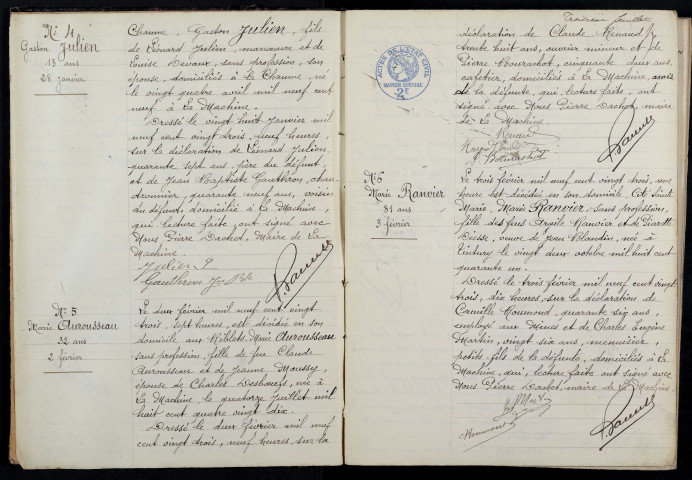 N° 4
Gaston Julien
13 ans
28 janvier
Chaume, Gaston Julien, fils
de Léonard Julien, manœuvre et de
Louise Devaux, sans profession, son
épouse, domiciliés à La Chaume, né
le vingt quatre avril mil neuf cent
neuf à La Machine.
Dressé le vingt huit Janvier mil
neuf cent vingt trois, neuf heures,
sur la déclaration de Léonard Julien,
quarante sept ans, père du défunt
et de Jean Baptiste Gauthron, chau-
dronnier, quarante neuf ans, voisin
du défunt, domiciliés à La Machine,
qui, lecture faite, ont signé avec
Nous Pierre Dachot, Maire de La
Machine.
Julien
Gauthron
N° 5
Marie Aurousseau
32 ans
2 février
Le deux février mil neuf cent vingt
trois, sept heures, est décédée en son
domicile aux Réblets, Marie Aurousseau
sans profession, fille de feu Claude
Aurousseau et de Jeanne Moussy,
épouse de Charles Desbœufs, née à
La Machine, le quatorze Juillet mil
huit cent quatre vingt dix.
Dressé le deux février mil neuf
cent vingt trois, neuf heures, sur la
Troisième feuillet
ACTES DE L'ETAT CIVIL
PAPIER SPECIAL
2F
déclaration de Claude Renaud,
trente huit ans, ouvrier mineur et de
Pierre Bourachot, cinquante deux ans,
cafetier, domiciliés à La Machine, amis
de la défunte, qui, lecture faite, ont
signé avec Nous Pierre Dachot, maire
de La Machine.
Renaud
Bourachot
N° 6
Marie Ranvier
81 ans
3 février
Le trois février mil neuf cent vingt trois, une
heure est décédée en son domicile, Cité Sainte
Marie, Marie Ranvier, sans profession,
fille des feus Ranvier et de
veuve de Jean Blandin, née à
Tintury le vingt deux octobre mil huit cent
quarante un.
Dressé le trois février mil neuf cent vingt
trois, dix heures, sur la déclaration de
Camille Moumont, quarante six ans,
employé aux Mines et de Charles Eugène
Martin, vingt six ans, menuisier,
petits-fils de la défunte, domiciliés à La
Machine, qui, lecture faite ont signé avec
Nous Pierre Dachot, maire de La Machine.
Moumont